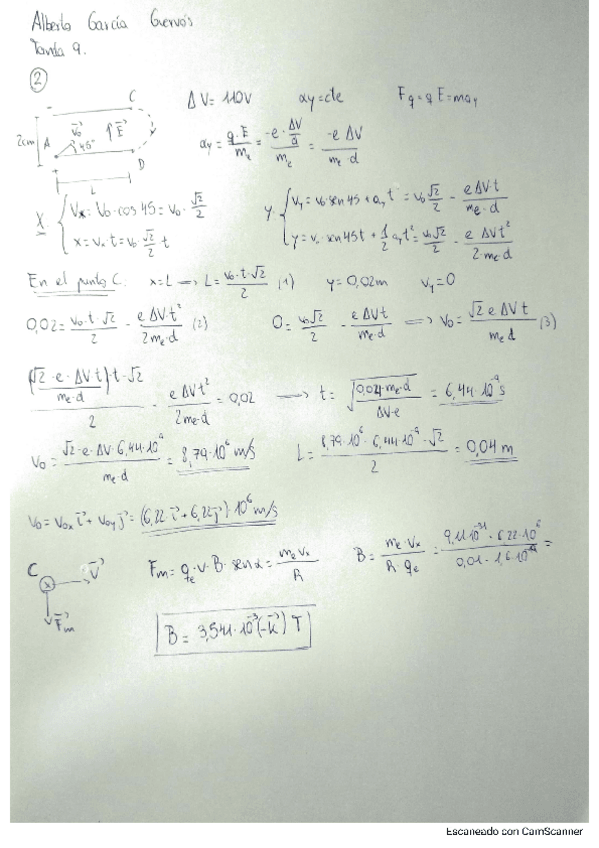 Alberto García Gervós
Tanda 9.
②
- C
ΔV = 110V αy = cte Fq = q E = m ay
2cm A v₀ 45° ↑E D
L
αy = q·E/me = -e·ΔV/d/me = -e ΔV/me·d
X { Vx = V₀·cos 45 = v₀·√2/2
x = v·t = v₀·√2/2 t
y { vy = v₀·sen 45 + ay t = v₀√2/2 - eΔV·t/me·d
y = v₀·sen 45t + 1/2 ayt² = v₀√2/2 - e ΔVt²/2·me·d
En el punto C. x = L → L = v₀·t·√2/2 (1) y = 0,02m vy = 0
0,02 = v₀·t·√2/2 - eΔV·t²/2me·d (2) 0 = v₀√2/2 - eΔVt/me·d ⟹ v₀ = √2 e ΔV t/me d (3)
(√2·e·ΔV·t/me·d)·t·√2/2 - eΔVt²/2me·d = 0,02 → t = √0,04·me·d/ΔV·e = 6,44·10⁻⁹ s
v₀ = √2·e·ΔV·6,44·10⁻⁹/me·d = 8,79·10⁶ m/s L = 8,79·10⁶·6,44·10⁻⁹·√2/2 = 0,04 m
v₀ = v₀x i + v₀y j = (6,22 i + 6,22 j)·10⁶ m/s
C v Fm
Fm = qe·v·B·senα = me vx/R B = me·vx/R·qe = 9,11·10⁻³¹·6,22·10⁶/0,01·1,6·10⁻¹⁹ =
B = 3,541·10⁻³ (-k) T
Escaneado con CamScanner